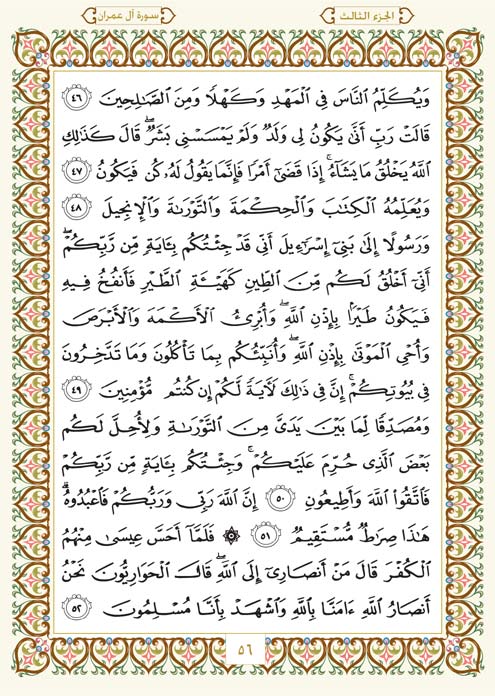 الجزء الثالث
سورة آل عمران
وَيُكَلِّمُ ٱلنَّاسَ فِي ٱلْمَهْدِ وَكَهْلًا وَمِنَ ٱلصَّٰلِحِينَ ٤٦
قَالَتْ رَبِّ أَنَّىٰ يَكُونُ لِي وَلَدٌ وَلَمْ يَمْسَسْنِي بَشَرٌۖ قَالَ كَذَٰلِكِ
ٱللَّهُ يَخْلُقُ مَا يَشَآءُۚ إِذَا قَضَىٰٓ أَمْرًا فَإِنَّمَا يَقُولُ لَهُۥ كُن فَيَكُونُ ٤٧
وَيُعَلِّمُهُ ٱلْكِتَٰبَ وَٱلْحِكْمَةَ وَٱلتَّوْرَىٰةَ وَٱلْإِنجِيلَ ٤٨
وَرَسُولًا إِلَىٰ بَنِيٓ إِسْرَٰٓءِيلَ أَنِّي قَدْ جِئْتُكُم بِـَٔايَةٍ مِّن رَّبِّكُمْۖ
أَنِّيٓ أَخْلُقُ لَكُم مِّنَ ٱلطِّينِ كَهَيْـَٔةِ ٱلطَّيْرِ فَأَنفُخُ فِيهِ
فَيَكُونُ طَيْرًۢا بِإِذْنِ ٱللَّهِۖ وَأُبْرِئُ ٱلْأَكْمَهَ وَٱلْأَبْرَصَ
وَأُحْيِ ٱلْمَوْتَىٰ بِإِذْنِ ٱللَّهِۖ وَأُنَبِّئُكُم بِمَا تَأْكُلُونَ وَمَا تَدَّخِرُونَ
فِي بُيُوتِكُمْۚ إِنَّ فِي ذَٰلِكَ لَـَٔايَةً لَّكُمْ إِن كُنتُم مُّؤْمِنِينَ ٤٩
وَمُصَدِّقًا لِّمَا بَيْنَ يَدَيَّ مِنَ ٱلتَّوْرَىٰةِ وَلِأُحِلَّ لَكُم
بَعْضَ ٱلَّذِي حُرِّمَ عَلَيْكُمْۚ وَجِئْتُكُم بِـَٔايَةٍ مِّن رَّبِّكُمْ
فَٱتَّقُوا۟ ٱللَّهَ وَأَطِيعُونِ ٥٠ إِنَّ ٱللَّهَ رَبِّي وَرَبُّكُمْ فَٱعْبُدُوهُۗ
هَٰذَا صِرَٰطٌ مُّسْتَقِيمٌ ٥١ ۞ فَلَمَّآ أَحَسَّ عِيسَىٰ مِنْهُمُ
ٱلْكُفْرَ قَالَ مَنْ أَنصَارِيٓ إِلَى ٱللَّهِۖ قَالَ ٱلْحَوَارِيُّونَ نَحْنُ
أَنصَارُ ٱللَّهِ ءَامَنَّا بِٱللَّهِ وَٱشْهَدْ بِأَنَّا مُسْلِمُونَ ٥٢
٥٦